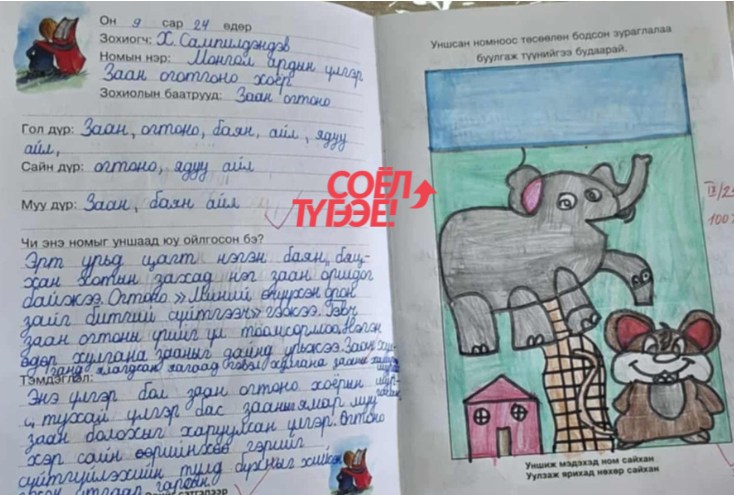 Он 9 сар 24 өдөр
Зохиогч: Х. Сампилдэндэв
Номын нэр: Монгол ардын үлгэр
Заан оготгоно хоёр
Зохиолын баатрууд: Заан огтоно
Гол дүр: Заан, огтоно, баян, айл, ядуу
айл,
Сайн дүр: огтоно, ядуу айл
Муу дүр: Заан, баян айл
Чи энэ номыг уншаад юу ойлгосон бэ?
Эрт урьд цагт нэгэн баян, бяц-
хан хотын захад нэг заан оршдог
байжээ. Огтоно »Миний өчүүхэн орон
зайг битгий сүйтгээч» гэжээ. Гэвч
заан огтоны үгийг үл тоомсорлоо. Нэгэн
өдөр хулгана зааныг дайнд урьжээ. Заан
Тэмдэглэл:
Энэ үлгэр бол заан огтоно хоёрын
тухай үлгэр бас заан ямар муу
заан болохыг харуулсан үлгэр. Огтоно
хэр сайн өөрийнхөө гэрийг
сүйтгүйлэхийн тулд бүхнийг хийхэн
Уншсан номноос төсөөлөн бодсон зураглалаа
буулгаж түүнийгээ будаарай.
СОЁЛ
ТҮГЭЭЕ!
100
Уншиж мэдэхэд ном сайхан
Уулзаж ярихад нөхөр сайхан